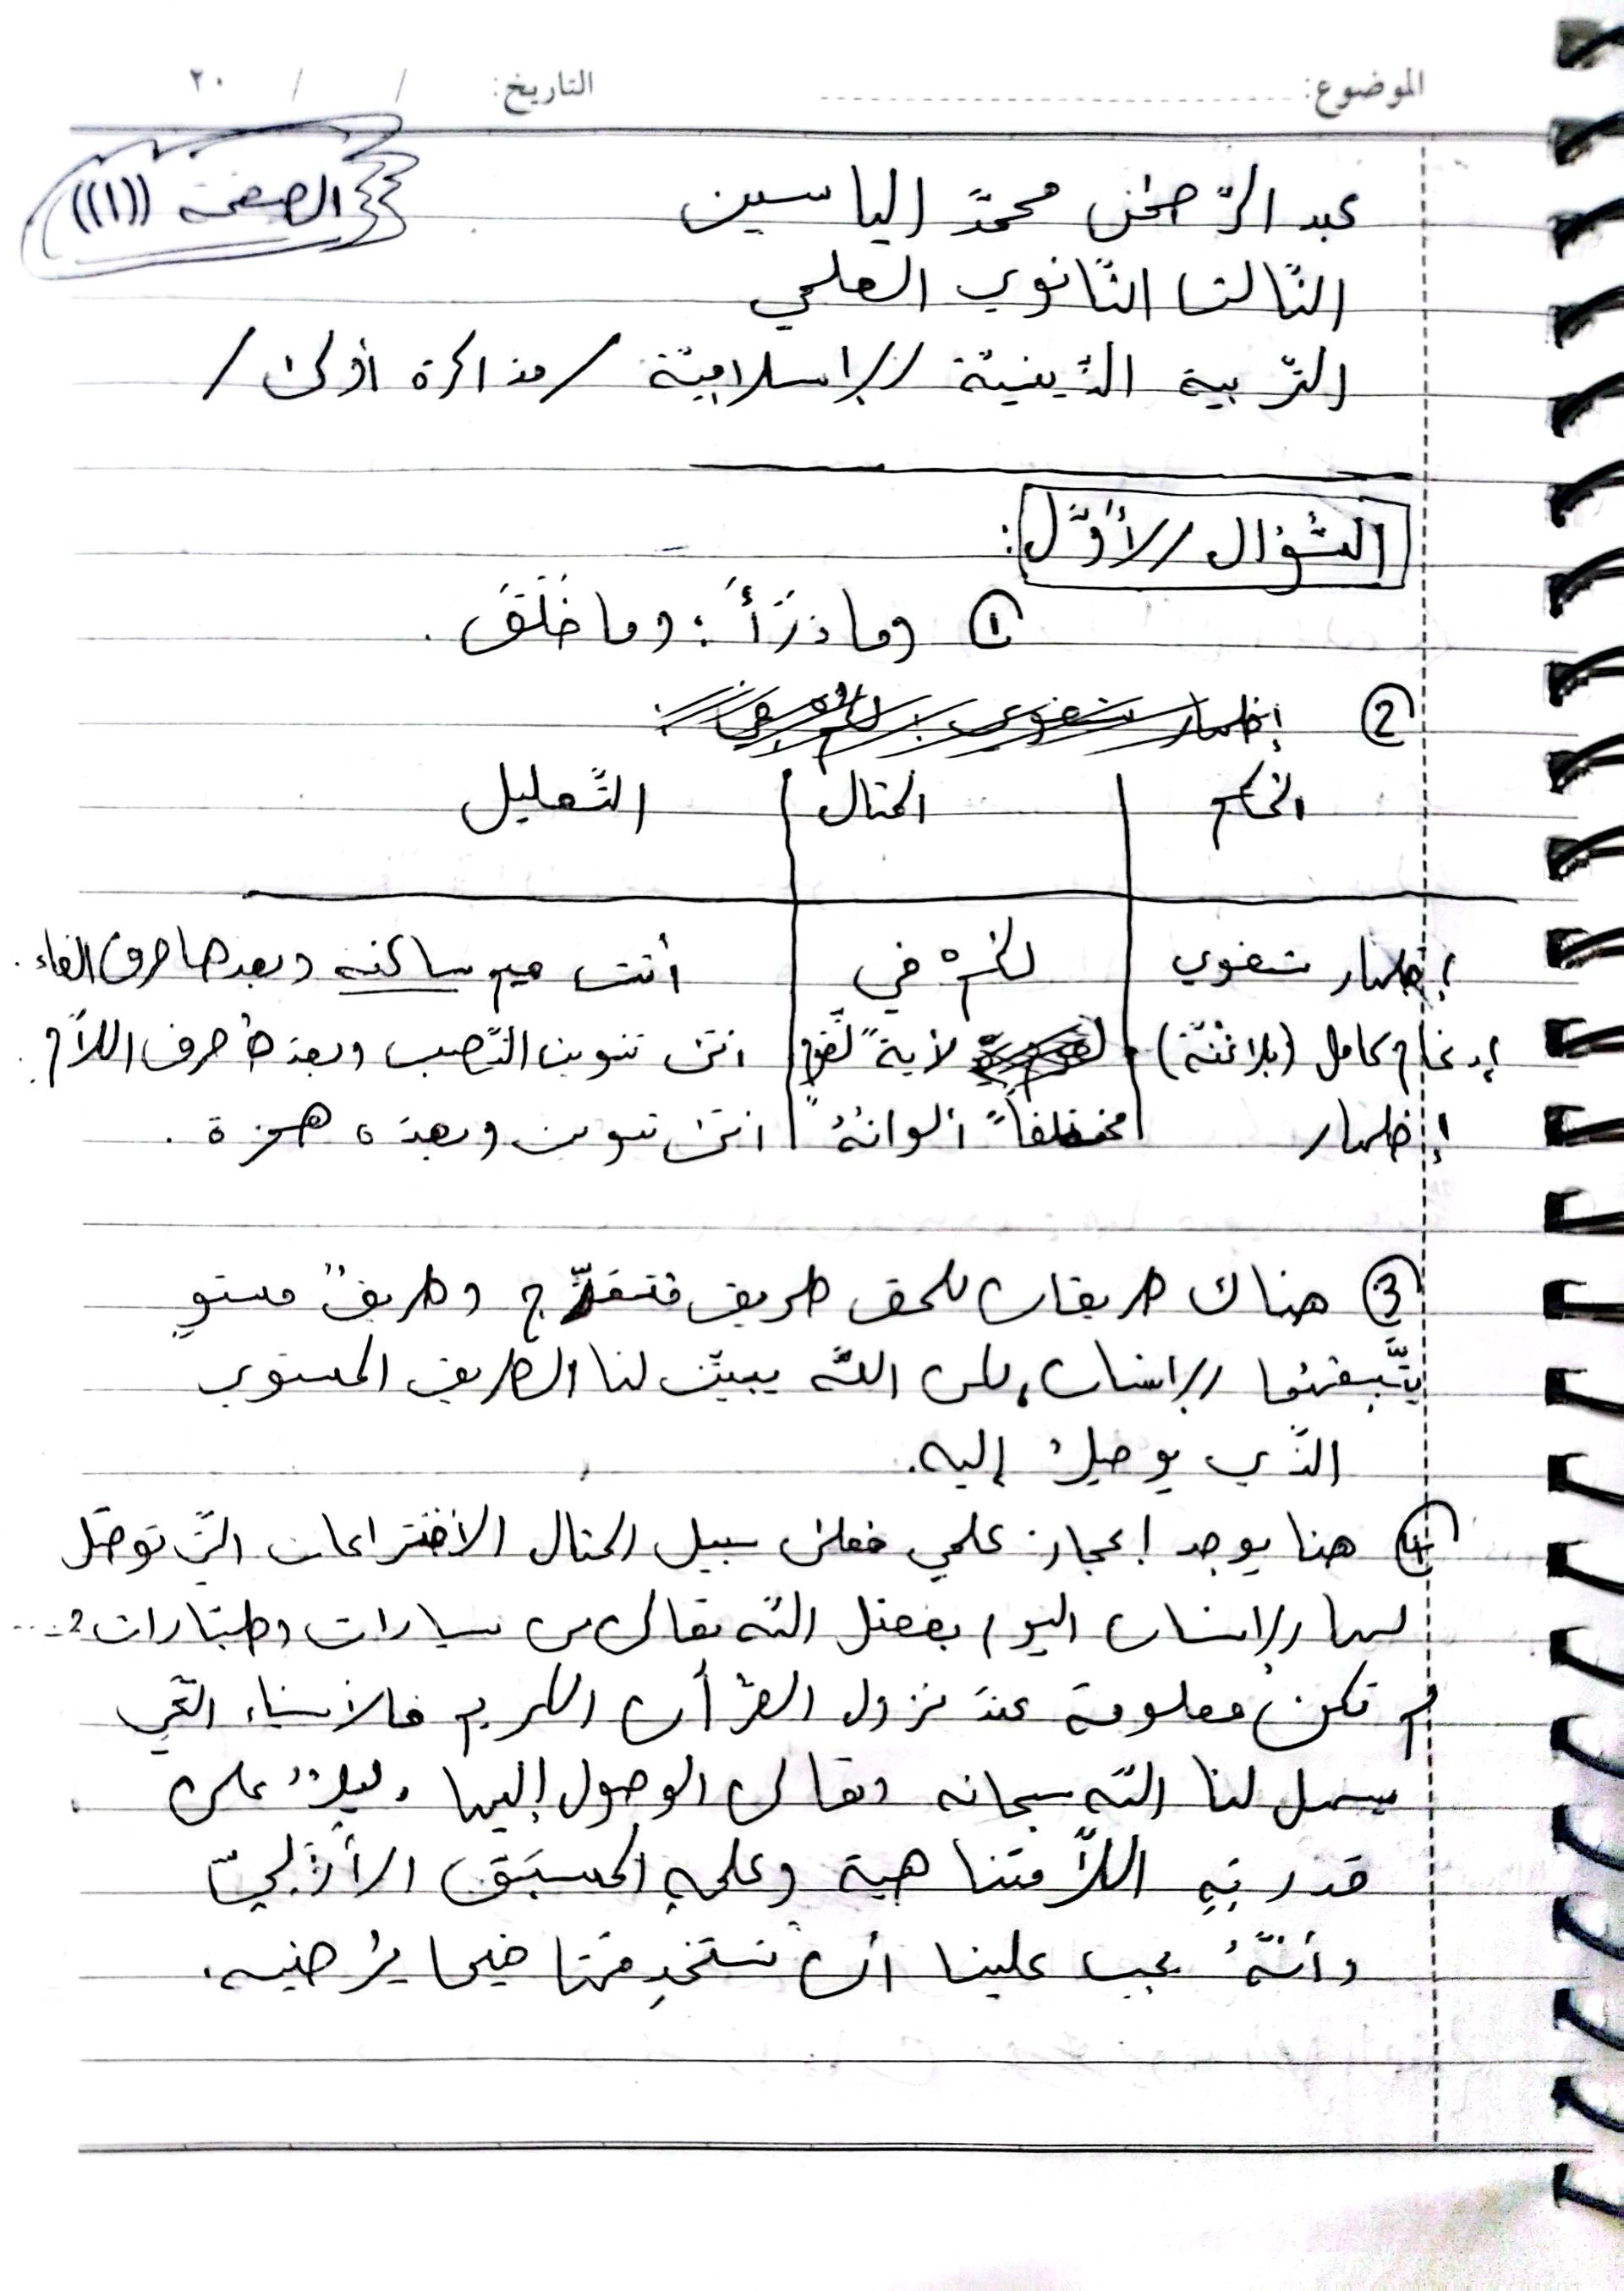 الموضوع: التاريخ: / / ٢٠
الصفحة ((١))
عبد الرّحمٰن محمّد الياسين
الثّالث الثّانوي العلمي
التّربية الدّينيّة الإسلاميّة /مذاكرة أولى/
السّؤال الأوّل:
① وما ذَرَأَ: وما خَلَقَ.
② إظهار شفوي
الحكم | المثال | التّعليل
إظهار شفوي | لكمْ في | أتت ميم ساكنه وبعدها حرف الفاء.
إدغام كامل (بلا غنّة) | لأيةً لّقوم | اتى تنوين النّصب وبعدها حرف اللّام.
إظهار | مختلفاً ألوانهُ | اتى تنوين وبعده همزة.
③ هناك طريقان للحق طريق متعرّج وطريقٌ مستوٍ
يتّبعهُما الإنسان، لكن اللّه يبيّن لنا الطريق المستوي
الذّي يوصِلُ إليه.
④ هنا يوجد إعجاز علمي فعلى سبيل المثال الاختراعات التّي توصّل
لها الإنسان اليوم بفضل اللّه تعالى من سيارات وطيّارات و....
لم تكن معلومة عندَ نزول القرْأن الكريم فالأشياء التّي
سهل لنا اللّه سبحانه وتعالى الوصول إليها دليلٌ على
قدرتِهِ اللّامتناهية وعلمِهِ المسبَق الأزليّ
وأنّهُ يجب علينا أن نستخدِمَها فيما يُرضيه.